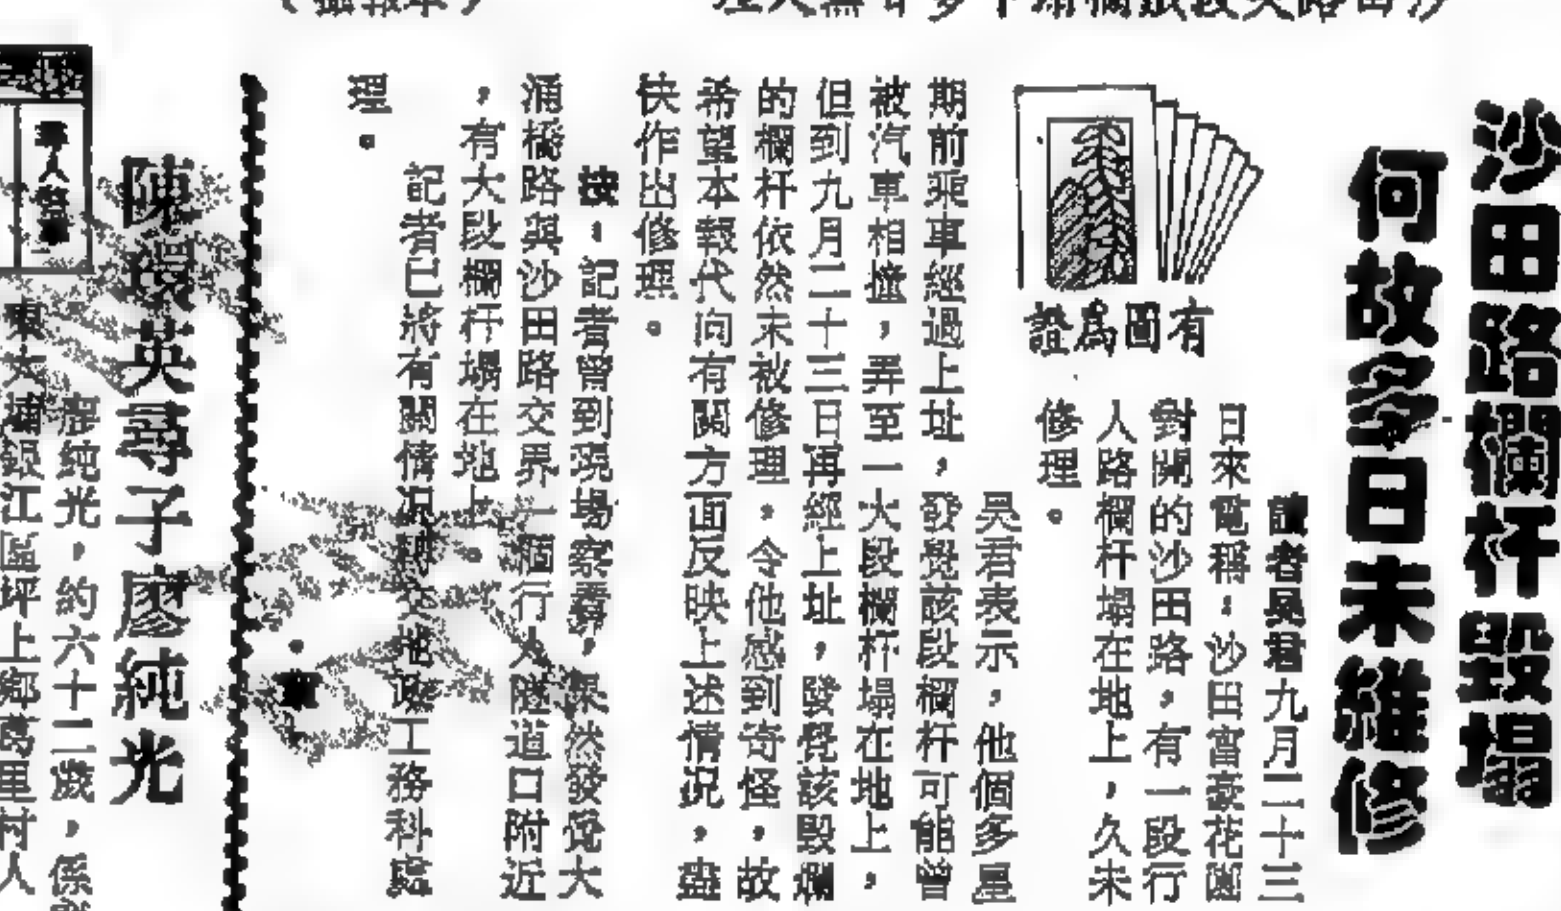 沙田路欄杆毀塌
何故多日未維修
有圖為證
讀者吳君九月二十三
日來電稱：沙田富豪花園
對開的沙田路，有一段行
人路欄杆塌在地上，久未
修理。
吳君表示，他個多星
期前乘車經過上址，發覺該段欄杆可能曾
被汽車相撞，弄至一大段欄杆塌在地上，
但到九月二十三日再經上址，發覺該毀爛
的欄杆依然未被修理，令他感到奇怪，故
希望本報代向有關方面反映上述情況，盡
快作出修理。
按：記者曾到現場察看，果然發覺大
涌橋路與沙田路交界一個行人隧道口附近
，有大段欄杆塌在地上。
記者已將有關情況轉交地政工務科處
理。
陳環英尋子廖純光
廖純光，約六十二歲，係
東大埔銀江區坪上鄉萬里村人